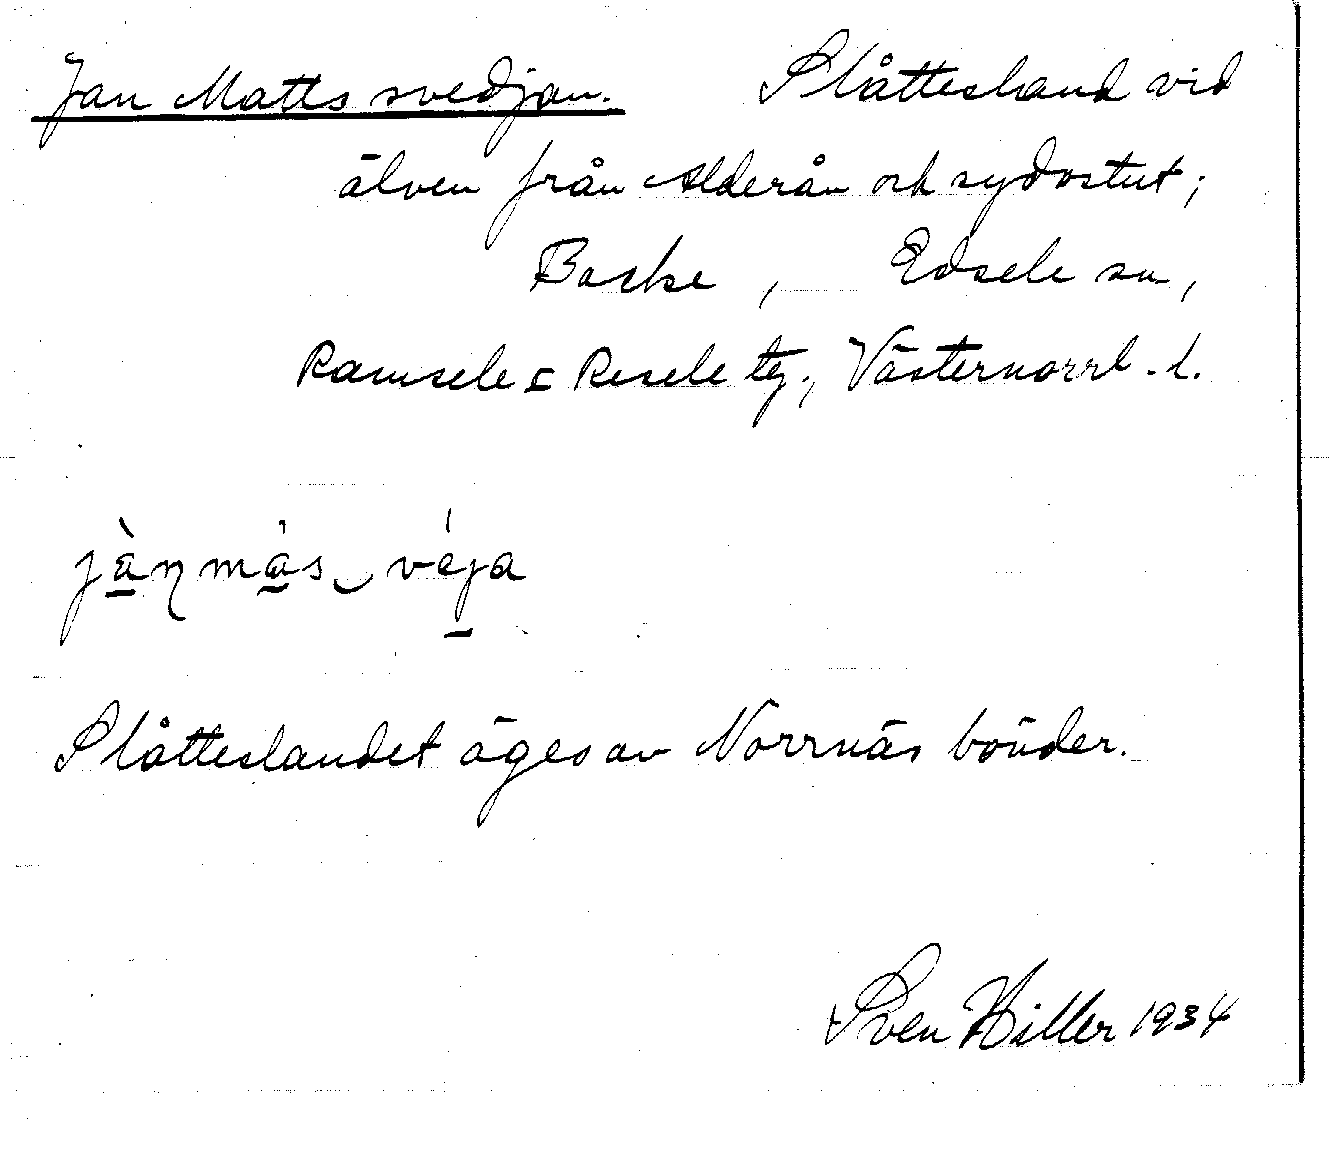 Jan Matts svedjan. Slåttesland vid
älven från Alderån och sydostut;
Backe, Edsele sn,
Ramsele o Resele tg., Västernorrl. l.
jàn más‿véja
Slåtteslandet äges av Norrnäs bönder.
Sven Hiller 1934